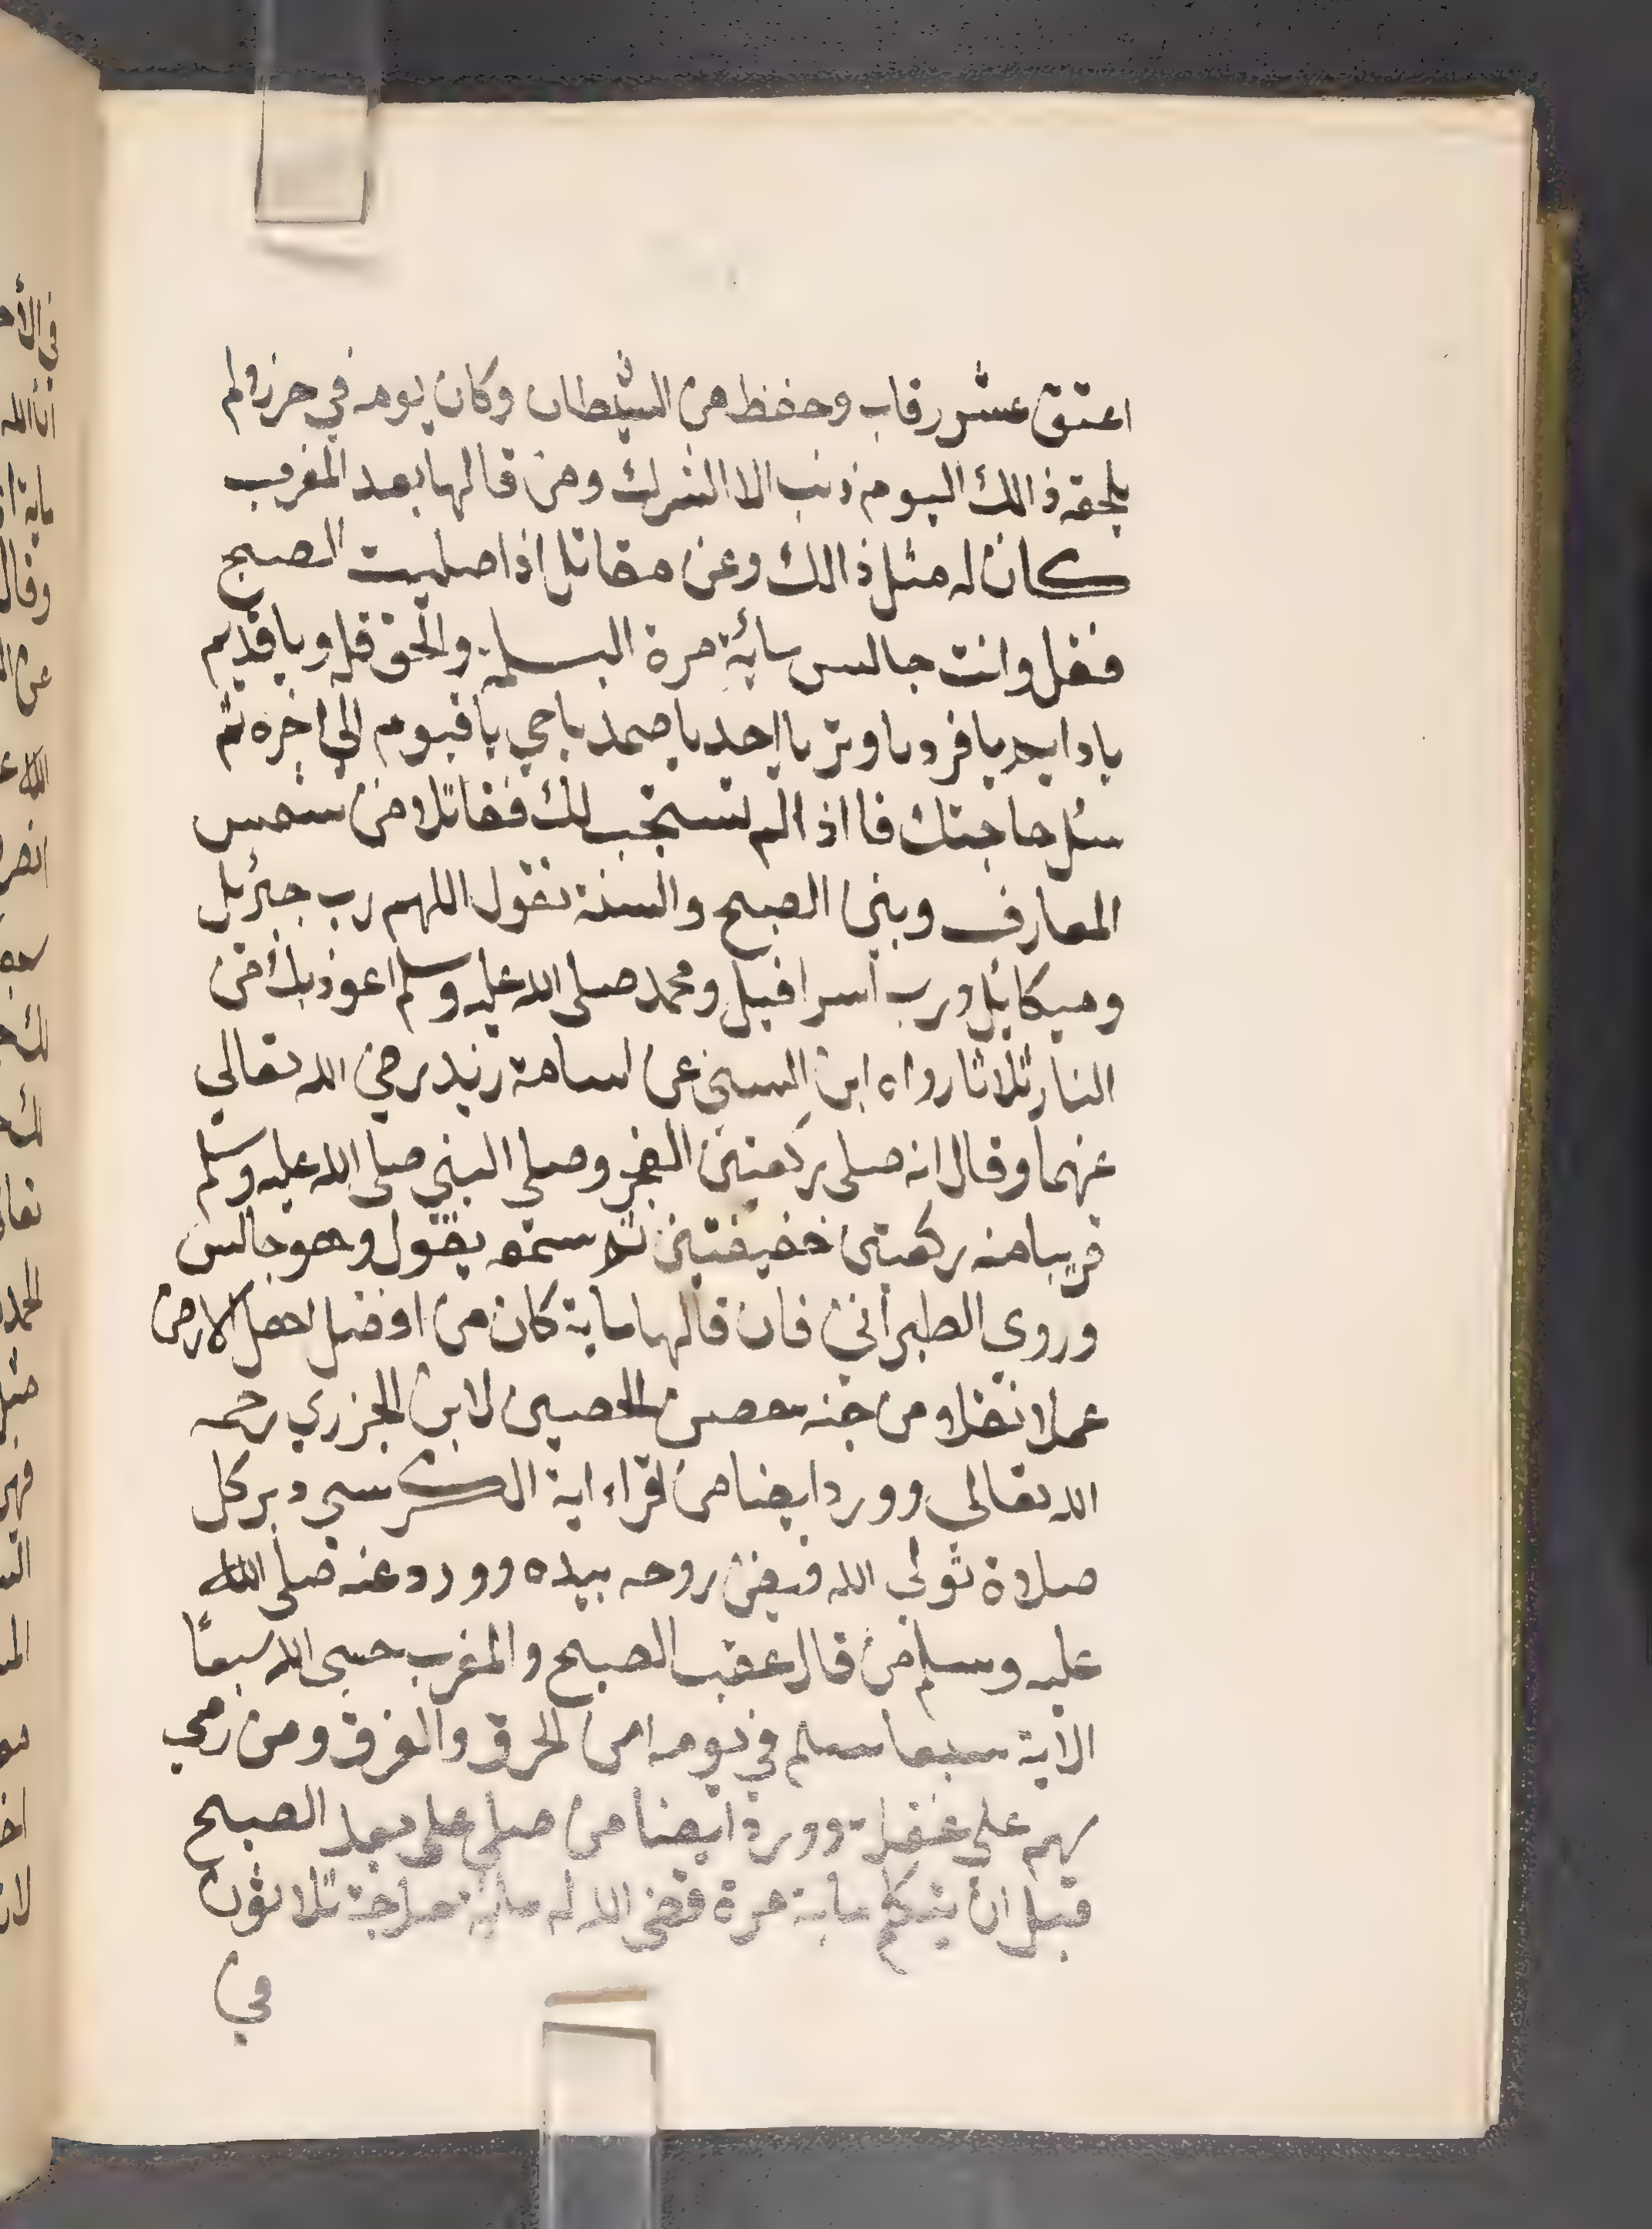 اعتق عشر رقاب وحفظ من الشيطان وكان يومه في حرز ولم
يلحقه ذالك اليوم ذنب الا الشرك ومن قالها بعد المغرب
كان له مثل ذالك وعن مقاتل اذا صليت الصبح
فقل وانت جالس مأية مرة البسملة والحوقله ويا قديم
يا دايم يا فرد يا وتر يا احد يا صمد يا حي يا قيوم الي اخره ثم
سئل حاجتك فااذ الم تستجب لك فقاتلا من شمس
المعارف وبين الصبح والسنة تقول اللهم رب جبرئل
وميكائل ورب اسرافيل ومحمد صلى الله عليه وسلم اعوذ بك من
النار ثلاثا رواه ابن السني عن اسامة زيد رضي الله تعالي
عنهما وقال انه صلى ركعتين الفجر وصلي النبي صلى الله عليه وسلم
قريبا منه ركعتين خفيفتين ثم سمعه يقول وهو جالس
وروي الطبراني فان قالها ماية كان من افضل اهل الارض
عملا نقلا من جنه حصن الحصين لابن الجزري رحمه
الله تعالي وورد ايضا من قراء اية الكرسي دبر كل
صلاة تولي الله قبض روحه بيده وورد عنه صلى الله
عليه وسلم من قال عقب الصبح والمغرب حسبي الله سبعًا
الاية سبعا سلم في يومه من الحرق والغرق ومن رمي
بهم علي غفلة وورد ايضا من صلي علي بعد الصبح
قبل ان يتكلم ماية مرة قضي الله له ماية حاجة ثلاثون
في